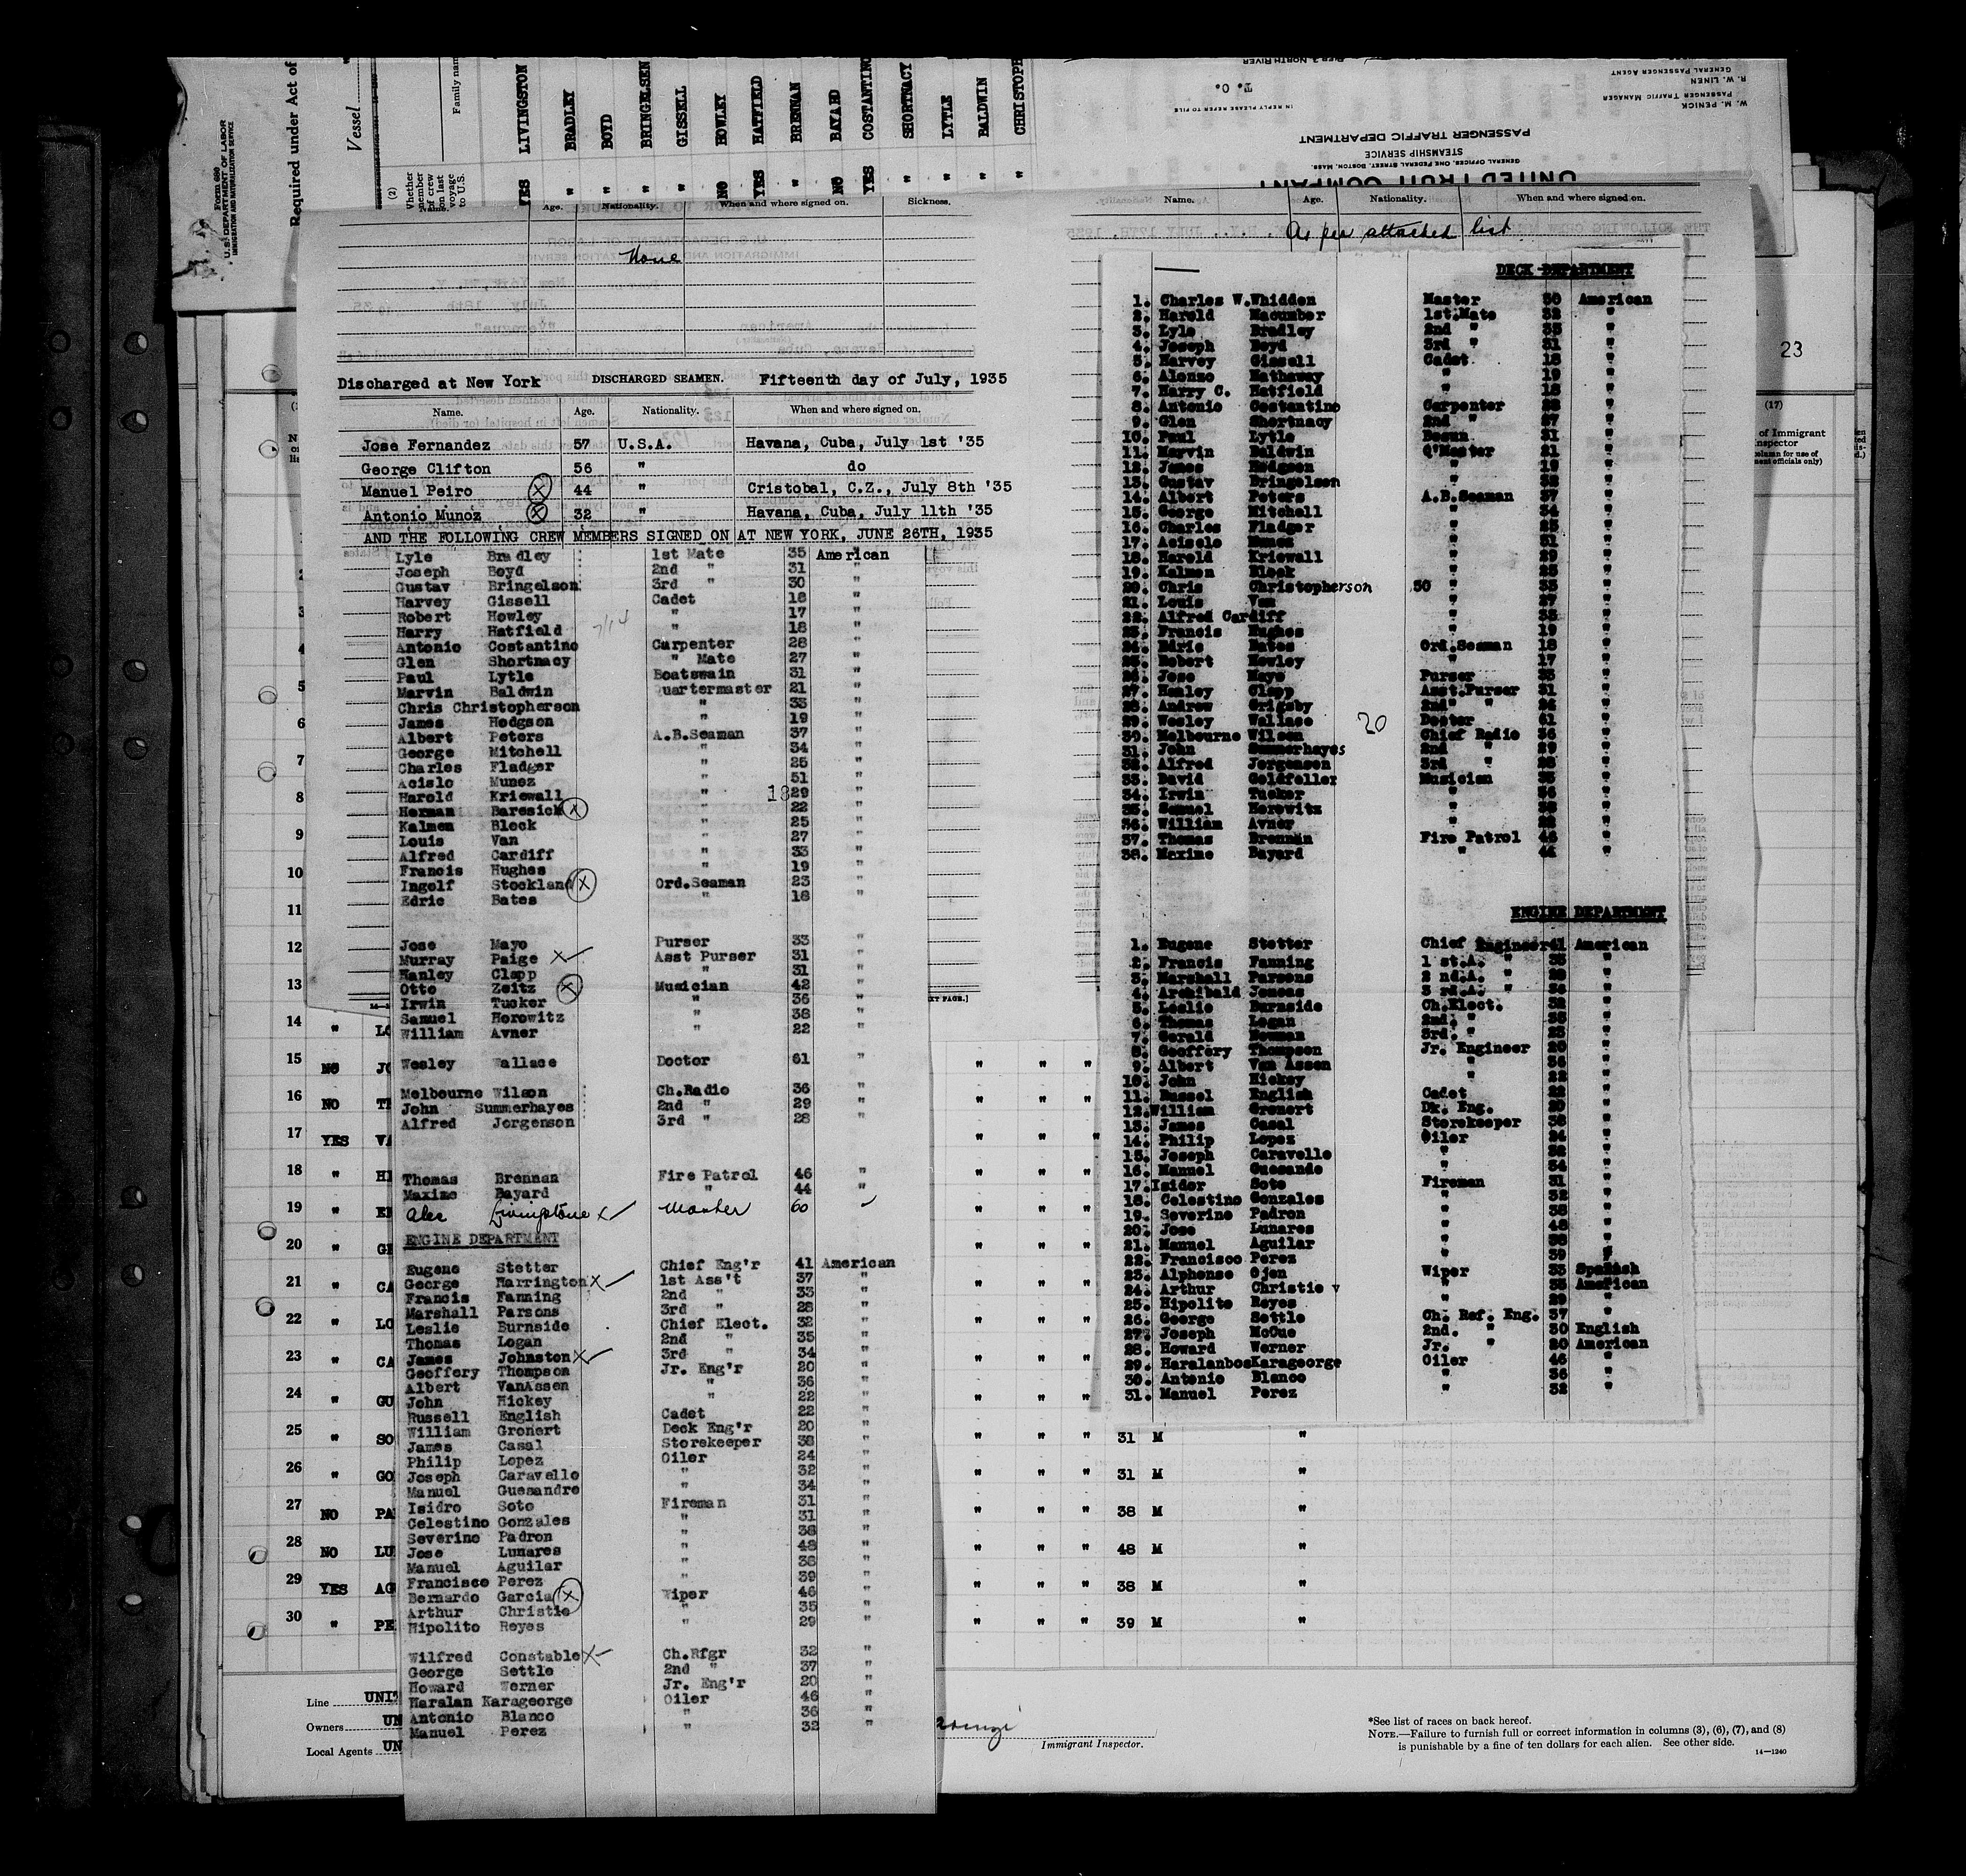 Form 680
U.S. DEPARTMENT OF LABOR
IMMIGRATION AND NATURALIZATION SERVICE
Required under Act of
Vessel
(2)
Whether member of crew on last voyage to U.S.
Family nam
YES LIVINGSTON
" BRADLEY
" BOYD
" BRINGELSEN
" GISSELL
NO HOWLEY
YES HATFIELD
" BRENNAN
NO BAYARD
YES COSTANTINO
" SHORTNACY
" LYTLE
" BALDWIN
" CHRISTOPH
UNITED FRUIT COMPANY
STEAMSHIP SERVICE
GENERAL OFFICES, ONE FEDERAL STREET, BOSTON, MASS.
PASSENGER TRAFFIC DEPARTMENT
W. M. PENICK
PASSENGER TRAFFIC MANAGER
R. W. LINEN
GENERAL PASSENGER AGENT
IN REPLY PLEASE REFER TO FILE
T. C.
PIER 3, NORTH RIVER
Name. Age. Nationality. When and where signed on. Sickness.
None
Discharged at New York DISCHARGED SEAMEN. Fifteenth day of July, 1935
Name. Age. Nationality. When and where signed on.
Jose Fernandez 57 U.S.A. Havana, Cuba, July 1st '35
George Clifton 56 " do
Manuel Peiro X 44 " Cristobal, C.Z., July 8th '35
Antonio Munoz X 32 " Havana, Cuba, July 11th '35
AND THE FOLLOWING CREW MEMBERS SIGNED ON AT NEW YORK, JUNE 26TH, 1935
Lyle Bradley 1st Mate 35 American
Joseph Boyd 2nd " 31 "
Gustav Bringelson 3rd " 30 "
Harvey Gissell Cadet 18 "
Robert Howley " 17 "
Harry Hatfield 7/14 " 18 "
Antonio Costantino Carpenter 28 "
Glen Shortnacy " Mate 27 "
Paul Lytle Boatswain 31 "
Marvin Baldwin Quartermaster 21 "
Chris Christopherson " 33 "
James Hodgson " 19 "
Albert Peters A.B.Seaman 37 "
George Mitchell " 34 "
Charles Fladger " 25 "
Acislo Munez " 51 "
Harold Kriewall " 18 29 "
Herman Baresich X " 22 "
Kalmen Bleck " 25 "
Louis Van " 27 "
Alfred Cardiff " 33 "
Francis Hughes " 19 "
Ingolf Stockland X Ord.Seaman 23 "
Edric Bates " 18 "
Jose Mayo Purser 33 "
Murray Paige X✓ Asst Purser 31 "
Hanley Clapp " 31 "
Otto Zeitz X Musician 42 "
Irwin Tucker " 36 "
Samuel Horowitz " 38 "
William Avner " 22 "
Wesley Wallace Doctor 61 "
Melbourne Wilson Ch.Radio 36 "
John Summerhayes 2nd " 29 "
Alfred Jorgenson 3rd " 28 "
Thomas Brennan Fire Patrol 46 "
Maxime Bayard " 44 "
Alec Livingstone X✓ Master 60 ✓
ENGINE DEPARTMENT
Eugene Stetter Chief Eng'r 41 American
George Harrington X✓ 1st Ass't 37 "
Francis Fanning 2nd " 33 "
Marshall Parsons 3rd " 28 "
Leslie Burnside Chief Elect. 32 "
Thomas Logan 2nd " 35 "
James Johnston X✓ 3rd " 34 "
Geoffery Thompson Jr. Eng'r 20 "
Albert VanAssen " 36 "
John Hickey " 22 "
Russell English Cadet 22 "
William Gronert Deck Eng'r 20 "
James Casal Storekeeper 38 "
Philip Lopez Oiler 24 "
Joseph Caravello " 32 "
Manuel Guesandre " 34 "
Isidro Soto Fireman 31 "
Celestino Gonzales " 31 "
Severino Padron " 38 "
Jose Lunares " 48 "
Manuel Aguilar " 38 "
Francisco Perez " 39 "
Bernardo Garcia X Wiper 46 "
Arthur Christie " 35 "
Hipolito Reyes " 29 "
Wilfred Constable X Ch.Rfgr 32 "
George Settle 2nd " 37 "
Howard Werner Jr. Eng'r 20 "
Haralan Karageorge Oiler 46 "
Antonio Blanco " 36 "
Manuel Perez " 32 "
Name. Age. Nationality. When and where signed on.
As per attached list
DECK DEPARTMENT
1. Charles W. Whidden Master 50 American
2. Harold Macumber 1st.Mate 32 "
3. Lyle Bradley 2nd " 35 "
4. Joseph Boyd 3rd " 31 "
5. Harvey Gissell Cadet 18 "
6. Alonzo Hathaway " 19 "
7. Harry C. Hatfield " 18 "
8. Antonio Costantino Carpenter 28 "
9. Glen Shortnacy 2nd " 27 "
10. Paul Lytle Bosun 31 "
11. Marvin Baldwin Q'Master 21 "
12. James Hodgson " 19 "
13. Gustav Bringelson " 32 "
14. Albert Peters A.B.Seaman 37 "
15. George Mitchell " 34 "
16. Charles Fladger " 25 "
17. Acisclo Munez " 51 "
18. Harold Kriewall " 29 "
19. Kalmen Bleek " 25 "
20. Chris Christopherson 30 " 33 "
21. Louis Van " 27 "
22. Alfred Cardiff " 33 "
23. Francis Hughes " 19 "
24. Edric Bates Ord.Seaman 18 "
25. Robert Howley " 17 "
26. Jose Mayo Purser 33 "
27. Hanley Clapp Asst.Purser 31 "
28. Andrew Grigsby 2nd" " 26 "
29. Wesley Wallace 20 Doctor 61 "
30. Melbourne Wilson Chief Radio 36 "
31. John Summerhayes 2nd " 29 "
32. Alfred Jorgensen 3rd " 28 "
33. David Goldfeller Musician 35 "
34. Irwin Tucker " 36 "
35. Samuel Horowitz " 38 "
36. William Avner " 22 "
37. Thomas Brennan Fire Patrol 46 "
38. Maxime Bayard " 44 "
ENGINE DEPARTMENT
1. Eugene Stetter Chief Engineer 41 American
2. Francis Fanning 1 st.A. " 33 "
3. Marshall Parsons 2 nd.A. " 28 "
4. Archibald Jensas 3 rd.A. " 36 "
5. Leslie Burnside Ch.Elect. 32 "
6. Thomas Logan 2nd. " 35 "
7. Gerald Newman 3rd. " 25 "
8. Geoffery Thompson Jr. Engineer 20 "
9. Albert Van Assen " 36 "
10. John Hickey " 22 "
11. Russel English Cadet 22 "
12. William Gronert Dk. Eng. 20 "
13. James Casal Storekeeper 38 "
14. Philip Lopez Oiler 24 "
15. Joseph Caravello " 32 "
16. Manuel Guesando " 34 "
17. Isidor Soto Fireman 31 "
18. Celestino Gonzales " 32 "
19. Severino Padron " 38 "
20. Jose Lunares " 48 "
21. Manuel Aguilar " 38 "
22. Francisco Perez " 39 "
23. Alphonso Ojen Wiper 33 Spanish
24. Arthur Christie v " 35 American
25. Hipolito Reyes " 29 "
26. George Settle Ch. Ref. Eng. 37 "
27. Joseph McCue 2nd. " 30 English
28. Howard Werner Jr. " 20 American
29. Haralanbos Karageorge Oiler 46 "
30. Antonio Blanco " 36 "
31. Manuel Perez " 32 "
23
(17)
of Immigrant Inspector
(column for use of
ment officials only)
3
4
5
6
7
8
9
10
11
12
13
14 " LO
15 NO JO
16 NO TH
17 YES VA
18 " HI
19 " EN
20 " GR
21 " CA
22 " LO
23 " CA
24 " GU
25 " SO " " " 31 M "
26 " GO " " " 31 M "
27 NO PA " " " 38 M "
28 NO LU " " " 48 M "
29 YES AG " " " 38 M "
30 " PE " " " 39 M "
EXT PAGE.]
Line UNIT
Owners UN
Local Agents UN
Immigrant Inspector.
*See list of races on back hereof.
NOTE.—Failure to furnish full or correct information in columns (3), (6), (7), and (8)
is punishable by a fine of ten dollars for each alien. See other side.
14—1240